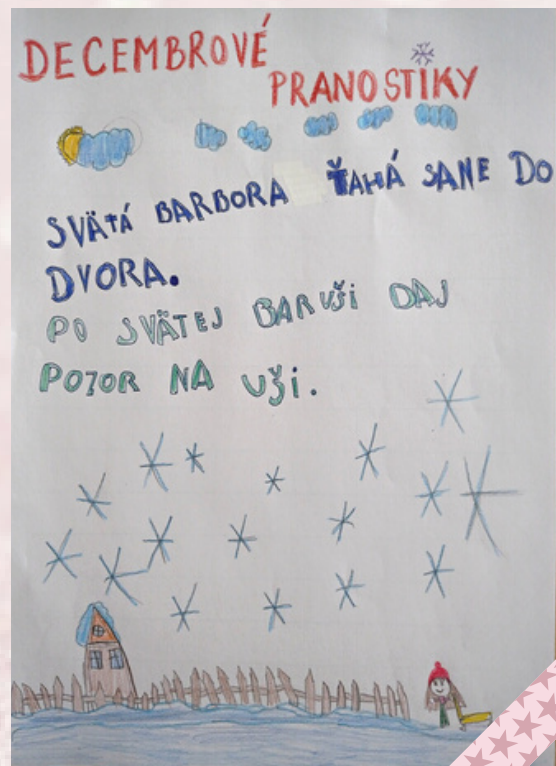 DECEMBROVÉ
PRANOSTIKY
SVÄTÁ BARBORA ŤAHÁ SANE DO
DVORA.
PO SVÄTEJ BARUŠI DAJ
POZOR NA UŠI.